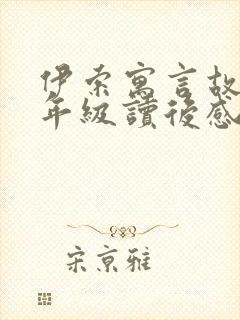 伊索寓言故
年級讀後感
宋京雅